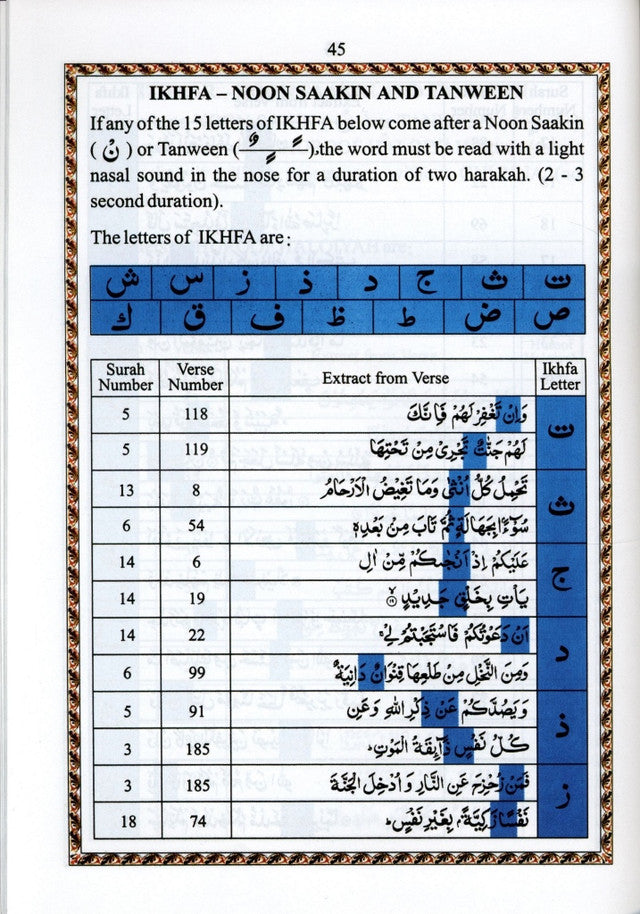 45
IKHFA – NOON SAAKIN AND TANWEEN
If any of the 15 letters of IKHFA below come after a Noon Saakin
( نْ ) or Tanween ( ـًـٍـٌ ),the word must be read with a light
nasal sound in the nose for a duration of two harakah. (2 - 3
second duration).
The letters of IKHFA are :
ت ث ج د ذ ز س ش
ص ض ط ظ ف ق ك
Surah Number Verse Number Extract from Verse Ikhfa Letter
5 118 وَاِنْ تَغْفِرْ لَهُمْ فَاِنَّكَ ت
5 119 لَهُمْ جَنّٰتٌ تَجْرِىْ مِنْ تَحْتِهَا
13 8 تَحْمِلُ كُلُّ اُنْثٰى وَمَا تَغِيْضُ الْاَرْحَامُ ث
6 54 سُوْٓءًۢا بِجَهَالَةٍ ثُمَّ تَابَ مِنْ بَعْدِهٖ
14 6 عَلَيْكُمْ اِذْ اَنْجٰىكُمْ مِّنْ اٰلِ ج
14 19 يَاْتِ بِخَلْقٍ جَدِيْدٍ ۙ﴿۱۹﴾
14 22 اَنْ دَعَوْتُكُمْ فَاسْتَجَبْتُمْ لِىْ ۚ د
6 99 وَمِنَ النَّخْلِ مِنْ طَلْعِهَا قِنْوَانٌ دَانِيَةٌ
5 91 وَيَصُدَّكُمْ عَنْ ذِكْرِ اللّٰهِ وَعَنِ ذ
3 185 كُلُّ نَفْسٍ ذَآئِقَةُ الْمَوْتِ ؕ
3 185 فَمَنْ زُحْزِحَ عَنِ النَّارِ وَ اُدْخِلَ الْجَنَّةَ ز
18 74 نَفْسًا زَكِيَّةً ۢ بِغَيْرِ نَفْسٍ ؕ